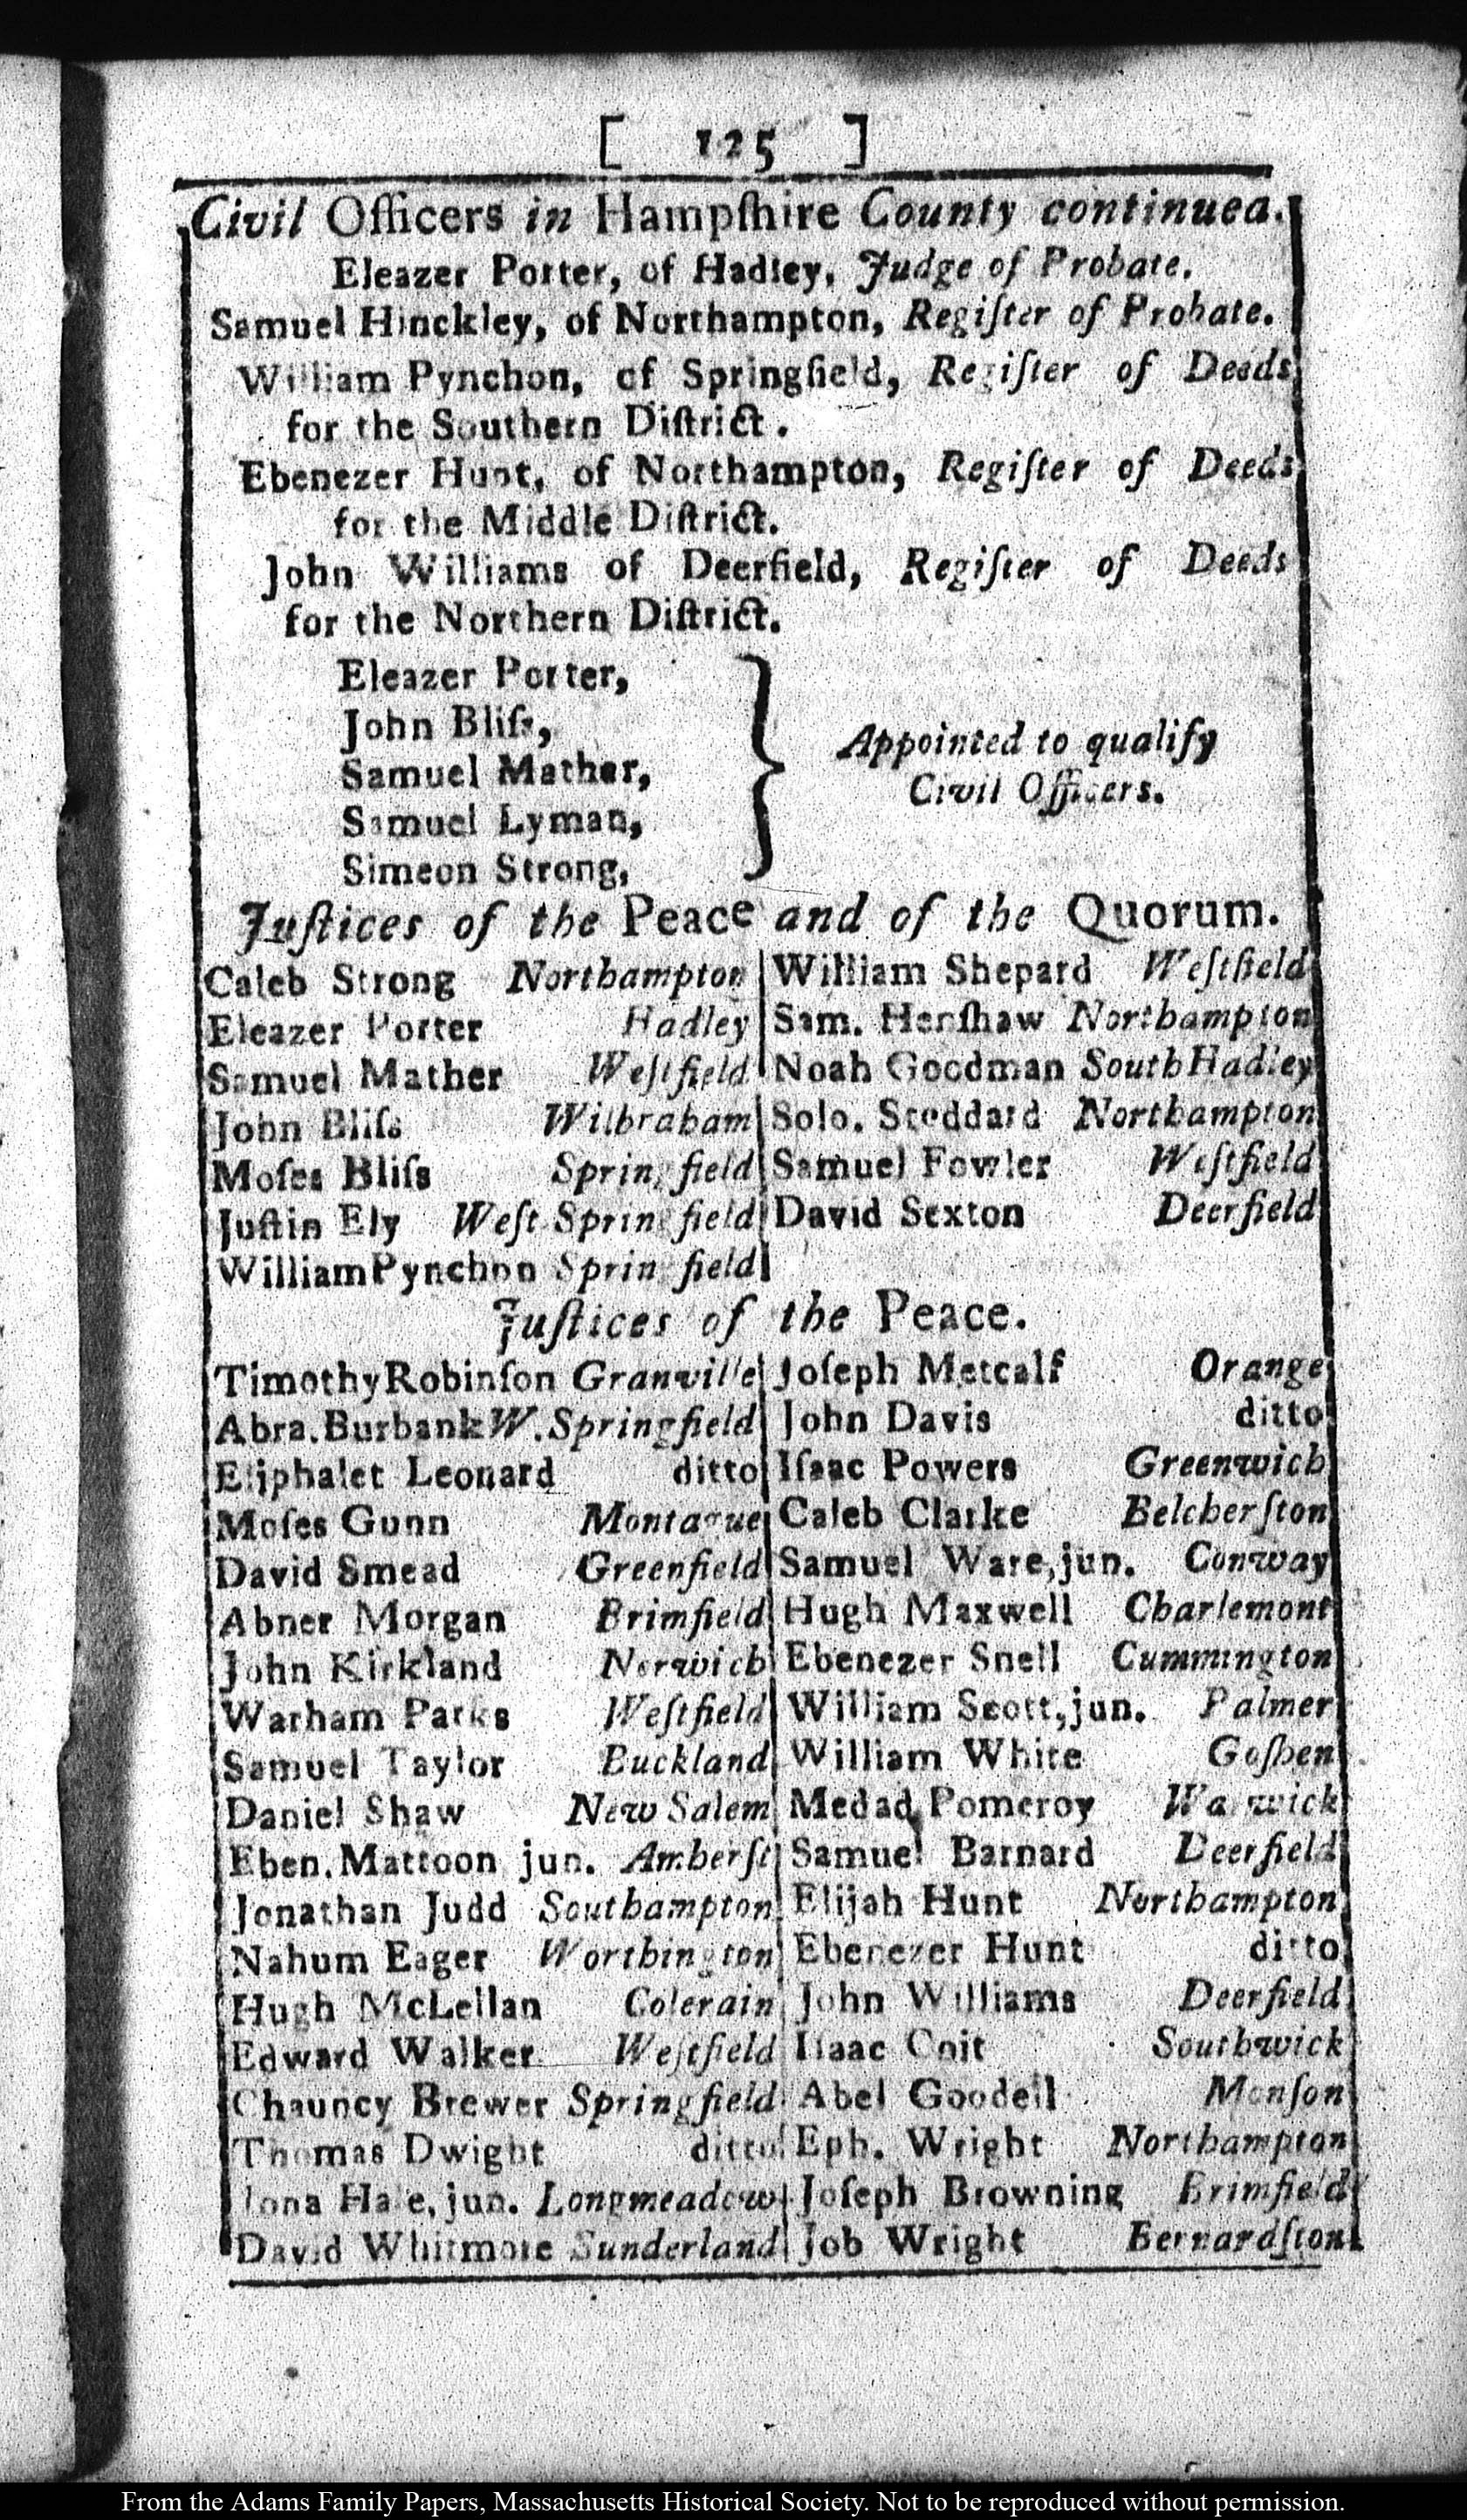 [ 125 ]
Civil Officers in Hampſhire County continued.
Eleazer Porter, of Hadley, Judge of Probate.
Samuel Hinckley, of Northampton, Regiſter of Probate.
William Pynchon, of Springfield, Regiſter of Deeds
for the Southern Diſtrict.
Ebenezer Hunt, of Northampton, Regiſter of Deeds
for the Middle Diſtrict.
John Williams of Deerfield, Regiſter of Deeds
for the Northern Diſtrict.
Eleazer Porter,
John Bliſs,
Samuel Mather,
Samuel Lyman,
Simeon Strong,
Appointed to qualify
Civil Officers.
Juſtices of the Peace and of the Quorum.
Caleb Strong Northampton
Eleazer Porter Hadley
Samuel Mather Weſtfield
John Bliſs Wilbraham
Moſes Bliſs Springfield
Juſtin Ely Weſt Springfield
William Pynchon Springfield
William Shepard Weſtfield
Sam. Henſhaw Northampton
Noah Goodman South Hadley
Solo. Stoddard Northampton
Samuel Fowler Weſtfield
David Sexton Deerfield
Juſtices of the Peace.
Timothy Robinſon Granville
Abra. Burbank W. Springfield
Eliphalet Leonard ditto
Moſes Gunn Montague
David Smead Greenfield
Abner Morgan Brimfield
John Kirkland Norwich
Warham Parks Weſtfield
Samuel Taylor Buckland
Daniel Shaw New Salem
Eben. Mattoon jun. Amherſt
Jonathan Judd Southampton
Nahum Eager Worthington
Hugh McLellan Colerain
Edward Walker Weſtfield
Chauncy Brewer Springfield
Thomas Dwight ditto
Jona Hale, jun. Longmeadow
David Whitmore Sunderland
Joſeph Metcalf Orange
John Davis ditto
Iſaac Powers Greenwich
Caleb Clarke Belcherſton
Samuel Ware, jun. Conway
Hugh Maxwell Charlemont
Ebenezer Snell Cummington
William Scott, jun. Palmer
William White Goſhen
Medad Pomeroy Warwick
Samuel Barnard Deerfield
Elijah Hunt Northampton
Ebenezer Hunt ditto
John Williams Deerfield
Iſaac Coit Southwick
Abel Goodell Monſon
Eph. Wright Northampton
Joſeph Browning Brimfield
Job Wright Bernardſton
From the Adams Family Papers, Massachusetts Historical Society. Not to be reproduced without permission.